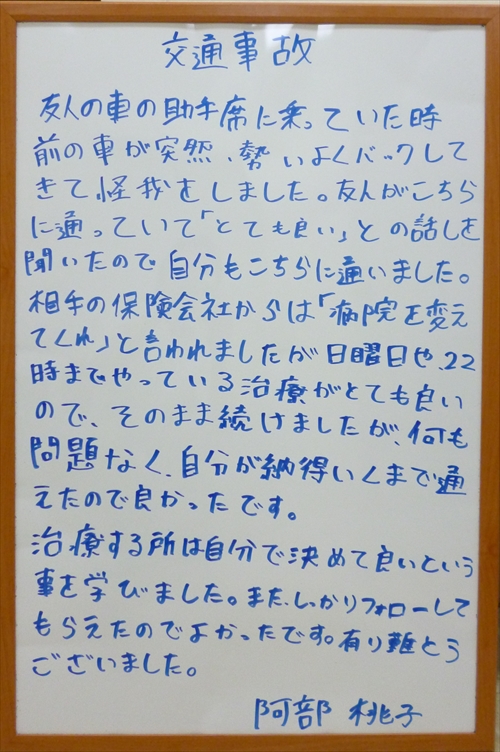 交通事故
友人の車の助手席に乗っていた時
前の車が突然、勢いよくバックして
きて、怪我をしました。友人がこちら
に通っていて「とても良い」との話しを
聞いたので自分もこちらに通いました。
相手の保険会社からは「病院を変え
てくれ」と言われましたが日曜日や、22
時までやっている治療がとても良い
ので、そのまま続けましたが、何も
問題なく、自分が納得いくまで通
えたので良かったです。
治療する所は自分で決めて良いという
事を学びました。また、しっかりフォローして
もらえたのでよかったです。有り難とう
ございました。
阿部 桃子